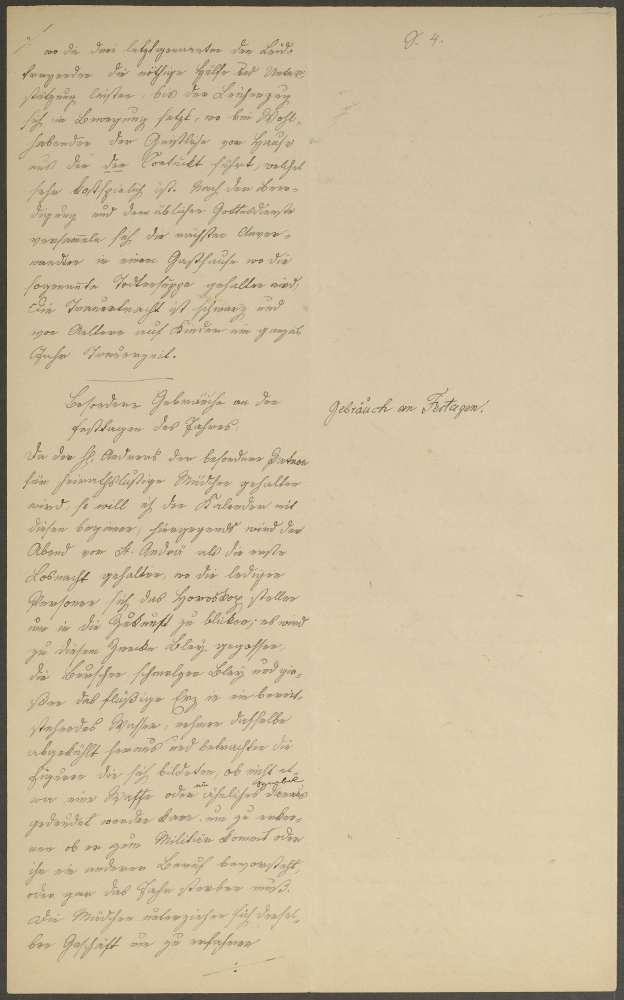 S. 4.
wo die drei letztgenannten den Leid-
tragenden die nöthige Hülfe und Unter-
stützung leisten, bis der Leichenzug
sich in Bewegung setzt, wo bei Wohl-
habenden der Geistliche vom Hause
aus die der Conduckt führt, welches
sehr kostspielich ist. Nach dem Beer-
digung und dem üblichen Gottesdienste
versammeln sich die nächsten Anver-
wandten in einem Gasthause wo die
sogenannte Todtensuppe gehalten wird,
Die Trauertracht ist schwarz und
von Aeltern auf Kinder ein ganzes
Jahr Trauerzeit.
Besondere Gebräuche an den
Festtagen des Jahres.
Gebräuch an Festagen!
Da der hl. Andreas der besondere Patron
für heirathslustige Mädchen gehalten
wird, so will ich den Kalender mit
diesen beginnen, hiergegends wird der
Abend von St. Andreä als die erste
Losnacht gehalten, wo die ledigen
Personen sich das Horoskop stellen
um in die Zukunft zu blicken; es wird
zu diesem Zwecke Bley gegossen,
die Burschen schmelzen Bley und gie-
ßen das flüßige Erz in ein bereit-
stehendes Wasser, nehmen dasselbe
abgekühlt heraus und betrachten die
Figuren die sich bildeten, ob nicht et-
wa eine Waffe oder ein ähnliches Symbol daraus
gedeutet werden kann, um zu erken-
nen ob er zum Militär kommt oder
ihm ein anderer Beruf bevorsteht,
oder gar das Jahr sterben muß.
Die Mädchen unterziehen sich dessel-
ben Geschäft um zu erfahren